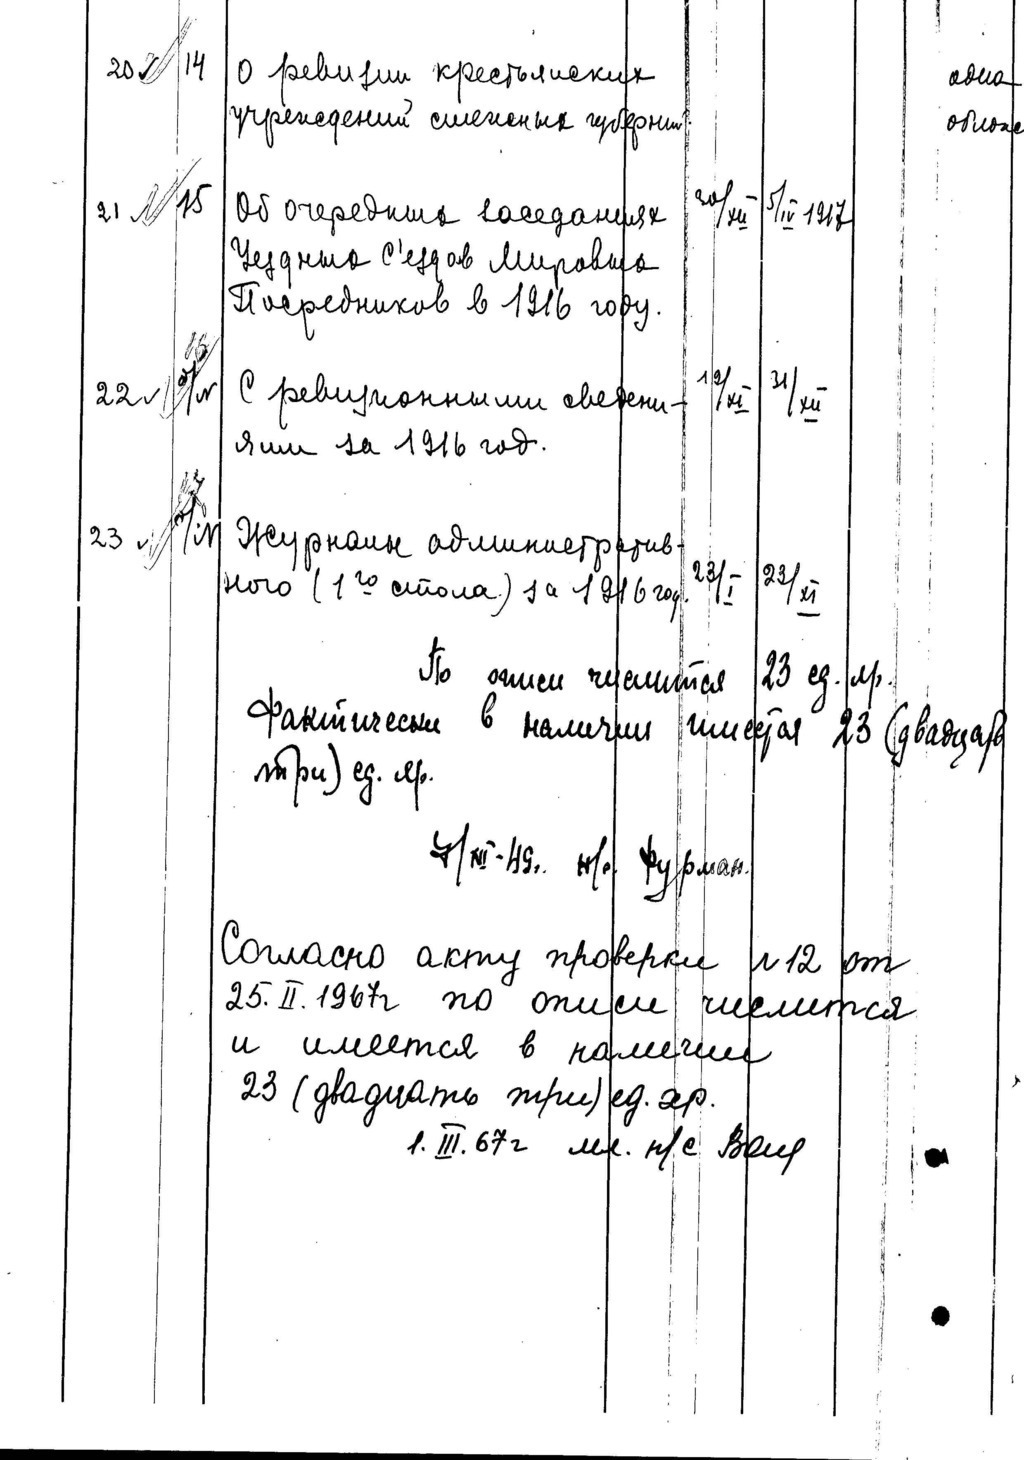 20 14 О ревизии крестьянских одна
учреждений смежных губерний.
21 15 Об очередных заседаниях 20/XII 5/IV 1917
Уездных С'ездов Мировых
Посредников в 1916 году.
16
22 б/N С ревизионными сведени- 19/XI 31/XII
ями за 1916 год.
17
23 б/N Журналы административ-
ного (1го стола) за 1916 год. 23/I 23/XI
По описи числится 23 ед. хр.
Фактически в наличии имеется 23 (двадцать
три) ед. хр.
7/XII-49г. н/с. Фурман.
Согласно акту проверки N12 от
25. II. 1967г по описи числится
и имеется в наличии
23 (двадцать три) ед. хр.
1. III. 67г мл. н/с